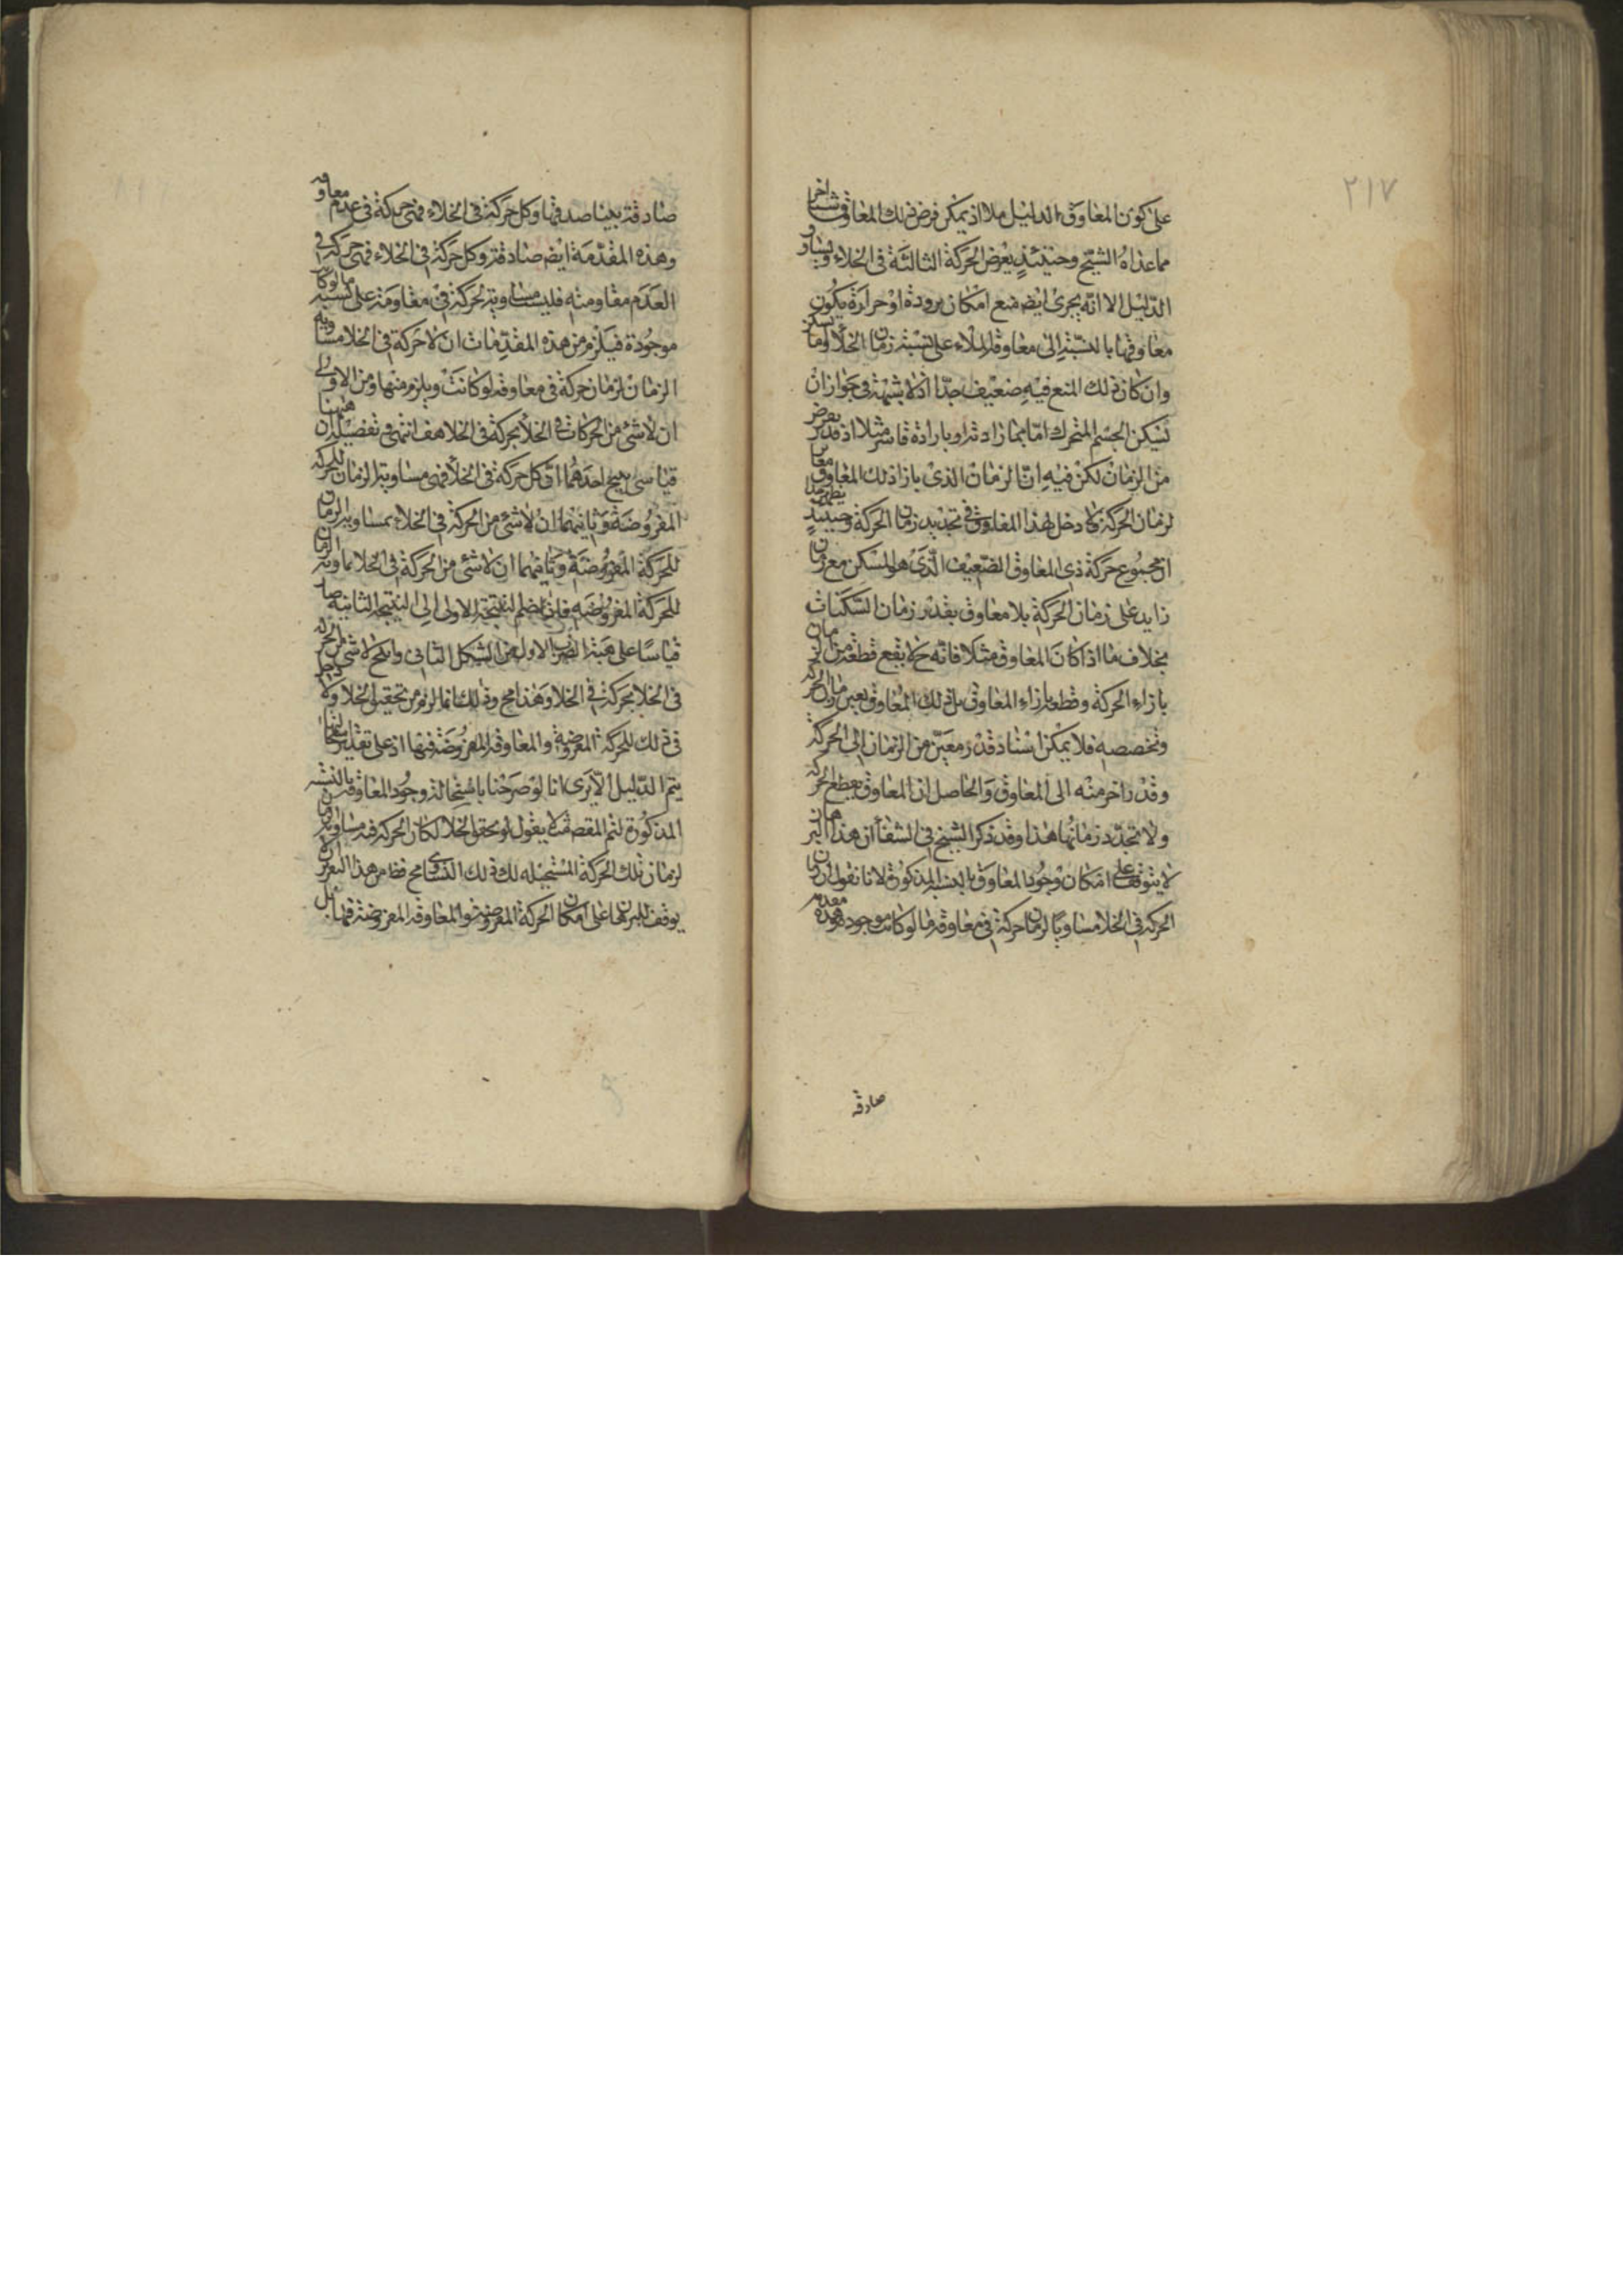 ٢١٧
على كون المعاوق الدليل ملا اذ يمكن فرض ذلك المعاوق شيئا اخر
مما عداه الشيخ وحينئذ يعرض الحركة الثالثة فى الخلاء ويساو
الدليل الا انه يجرى ايض مع امكان برودة او حرارة يكون
معاوقها بالنسبة الى معاوقة الملاء على نسبة زمان الخلأ وما
وان كان ذلك المنع فيه ضعيف جدّا اذ لا شبهة فى جواز ان يسكن
تسكن الجسم المتحرك امّا بمازادته او بارادة قاسر مثلا اذ قدر يعرض
من الزمان لكن فيه ان الزمان الذى بازاء ذلك المعاوق
لزمان الحركة ولا دخل لهذا المعاوق فى تحديد زمان الحركة وحينئذ يظهر
ان مجموع حركة ذى المعاوق الضعيف الذى هو المسكن مع زمان
زايد على زمان الحركة بلا معاوق بقدر زمان السكنات
بخلاف ما اذا كان المعاوق مثلا فانه ح لا يقع قطعة من زمان
بازاء الحركة وقطعة بازاء المعاوق بل ذلك المعاوق يعين زمان الحركة
وتخصصه فلا يمكن اسناد قدر معين من الزمان الى الحركة
وقدر اخر منه الى المعاوق والحاصل ان المعاوق يقطع الحركة
ولا تحدد زمانها هذا وقد ذكر الشيخ فى الشفأ ان هذا البرهان
لا يتوقف على امكان وجود المعاوق بالنسبة المذكورة لانا نقول ان زمان
الحركة فى الخلا مساويا لزمان حركة فى معاوقة ما لو كانت موجودة وهذه مقدمه
صادقه
صادقة بينا صدقها وكل حركة فى الخلاء فهى حركة فى عدم معاوقه
وهذه المقدّمة ايض صادقة وكل حركة فى الخلاء فهى حركة فى
العدم مقاومته فليست مساوية لحركة فى مقاومة على نسبة ما لو كا
موجودة فيلزم من هذه المقدّمات ان لا حركة فى الخلا مساويه
الزمان لزمان حركة فى معاوقة لو كانت ويلزم منها ومن الاولى
ان لا شئ من الحركات فى الخلأ بحركة فى الخلا هف انتهى وتفصيله ان ههنا
قياسى ينتج احدهما ان كل حركة فى الخلأ فهى مساوية الزمان للحركة
المفروضة وثانيهما ان لا شئ من الحركة فى الخلاء بمساوية الزمان
للحركة المفروضة وثانيهما ان لا شئ من الحركة فى الخلا بماوية الزمان
للحركة المفروضه فاذا نضم النتيجة الاولى الى النتيجة الثانية صار
قياسا على هيئة الضرب الاول من الشكل الثانى وانتج لا شئ من الحركة
فى الخلا بحركة فى الخلا وهذا مح وذلك انما لزم من تحقيق الخلا ولا دخل
فى ذلك للحركة المفروضة والمعاوقة المفروضة فيها اذ على تقدير استحالتها
يتم الدليل الا يرى انا لو صرحنا باستحالة وجود المعاوقة بالنسبة
المذكورة لتم المقص مثلا يقول لو تحقق الخلا لكان الحركة فيه مساوية
لزمان تلك الحركة المستحيله لك ذلك التساوى مح فظهر من هذا التقرير
يوقف البرهان على امكان الحركة المفروضة والمعاوقة المفروضة فيها بل